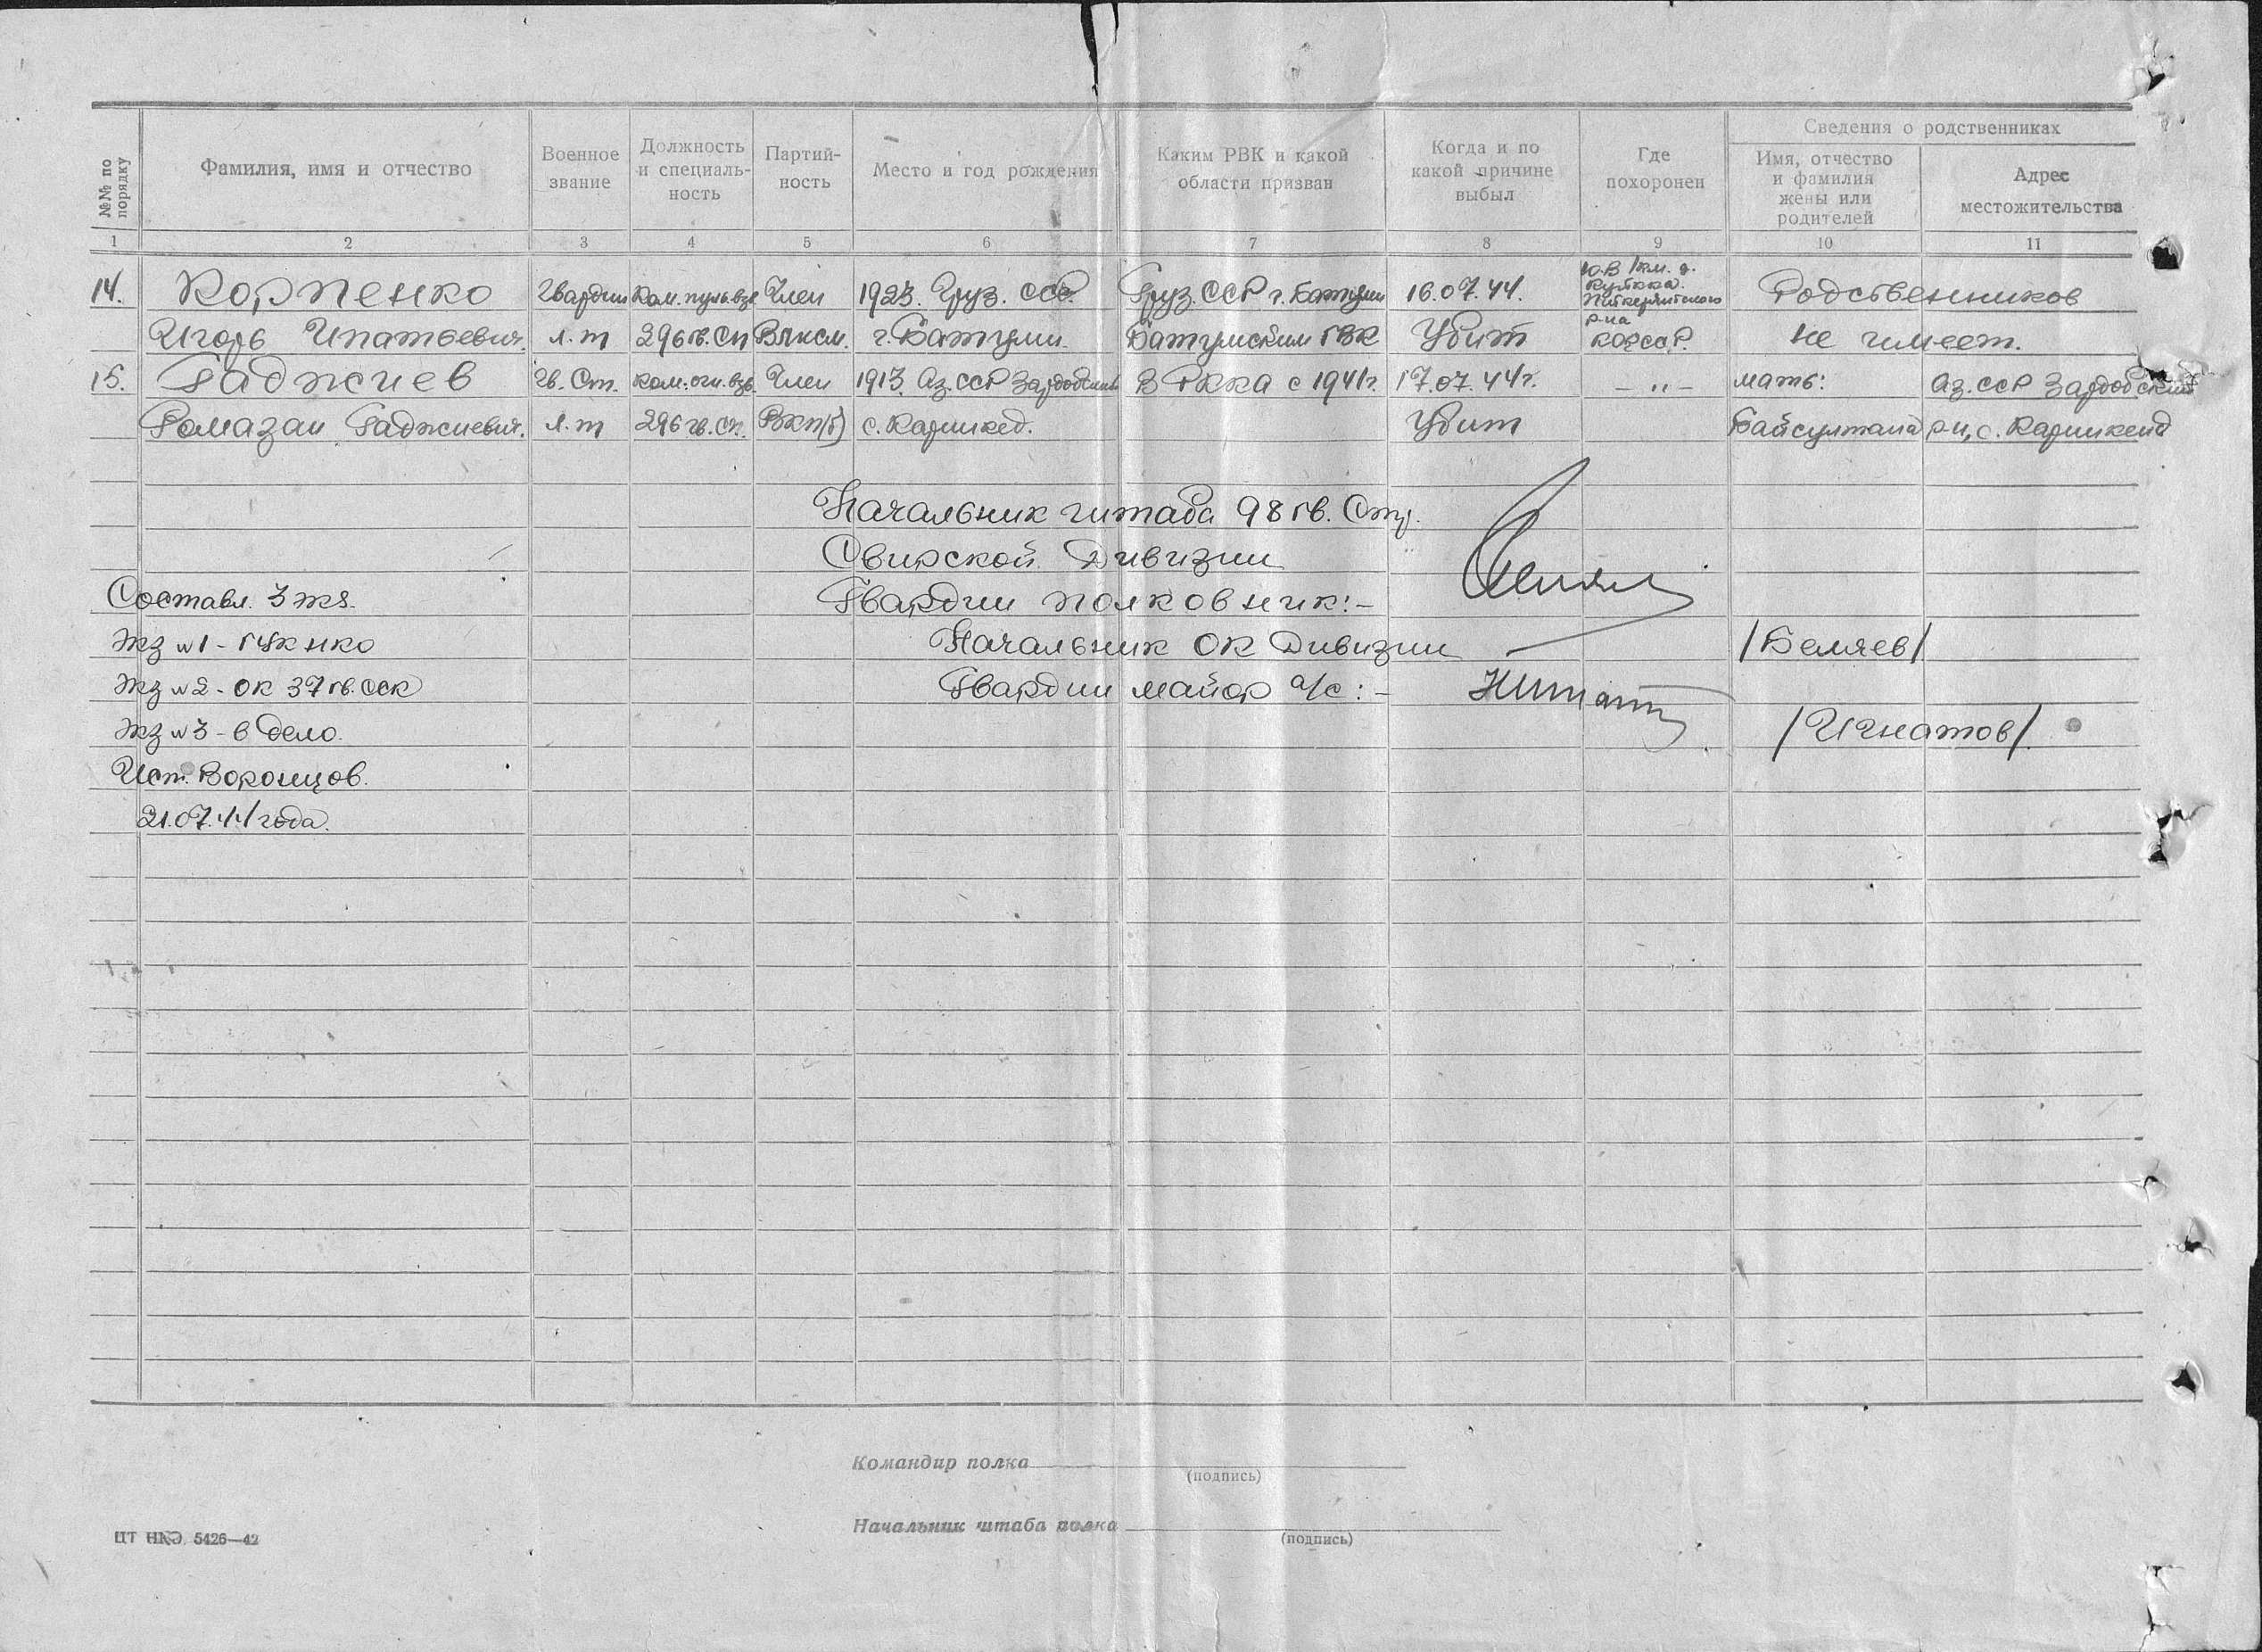 №№ по порядку
Фамилия, имя и отчество
Военное звание
Должность и специаль-ность
Партий-ность
Место и год рождения
Каким РВК и какой области призван
Когда и по какой причине выбыл
Где похоронен
Сведения о родственниках
Имя, отчество и фамилия жены или родителей
Адрес местожительства
1 2 3 4 5 6 7 8 9 10 11
14. Корпенко Гвардии Ком. пуль.взв. Член 1923. Груз. ССР. Груз. ССР г. Батуми 16.07.44. Ю.В 1 км. д. Родственников
Питкерантского
Игорь Ипатьевич. л-т 296 гв. сп ВЛКСМ. г. Батуми. Батумским ГВК Убит р-на КФССР. не имеет.
15. Гаджиев Гв. Ст. Ком. огн. взв. Член 1913. Аз. ССР Зардобский В РККА с 1941 г. 17.07.44 г. — " — мать: Аз. ССР Зардобский
Рамазан Гаджиевич. л-т 296 гв. сп. ВКП(б) с. Каришкед. Убит Байсултана р-н, с. Каришкенд
Начальник штаба 98 гв. Стр.
Свирской Дивизии
Гвардии полковник:-
/Беляев/
Начальник ОК Дивизии
Гвардии майор а/с:-
/Игнатов/.
Составл. 3 экз.
Экз №1 - ГУК НКО
Экз №2 - ОК 37 гв. ССК
Экз №3 - в дело.
Исп. Воронцов.
21.07.44 года.
Командир полка
(подпись)
Начальник штаба полка
(подпись)
ЦТ НКО 5426—42